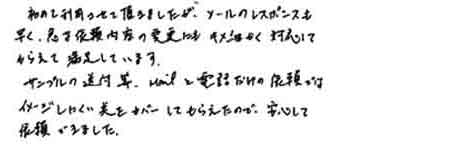 初めて利用させて頂きましたが、メールのレスポンスも
早く、急な依頼内容の変更にもきめ細かく対応して
もらえて満足しています。
サンプルの送付等、Mailと電話だけの依頼では
イメージしにくい点をカバーしてもらえたので、安心して
依頼できました。